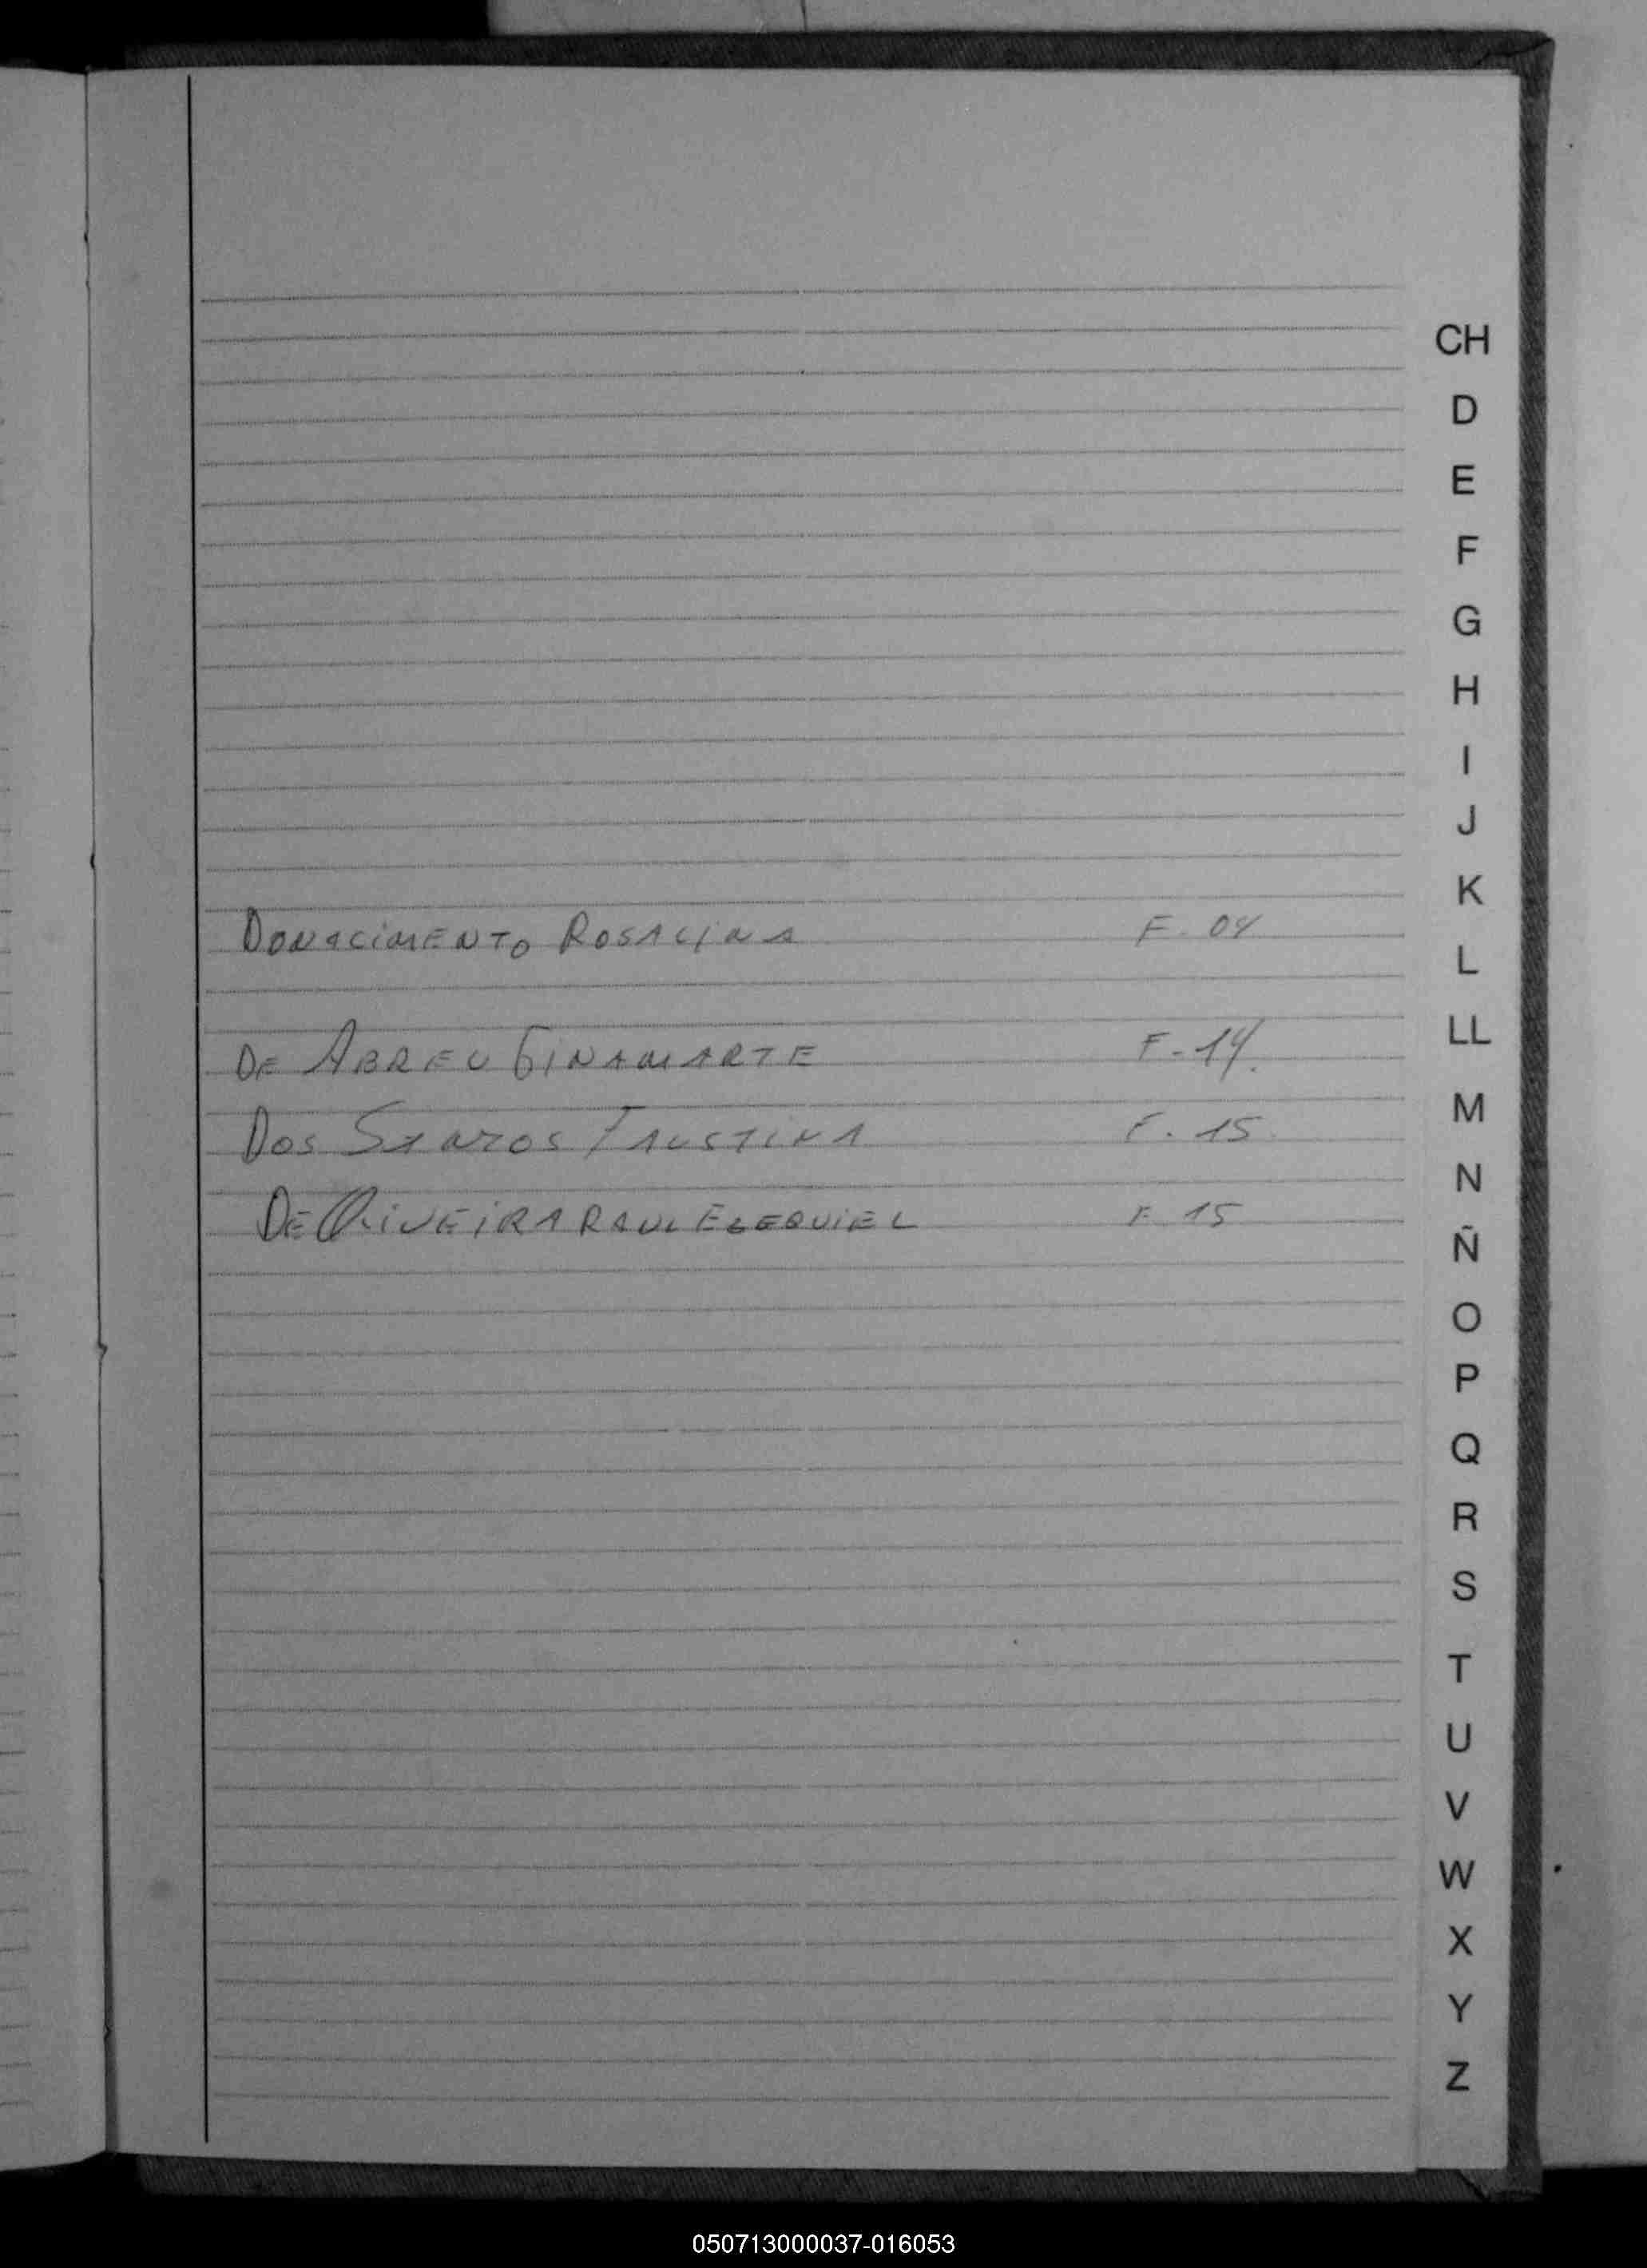 CH
D
E
F
G
H
I
J
K
DONACIMENTO ROSALINA F-04
L
DE ABREU GINAMARTE F-14.
LL
M
DOS SANTOS FAUSTINA F.15
N
DE OLIVEIRA RAUL EZEQUIEL F 15
Ñ
O
P
Q
R
S
T
U
V
W
X
Y
Z
050713000037-016053